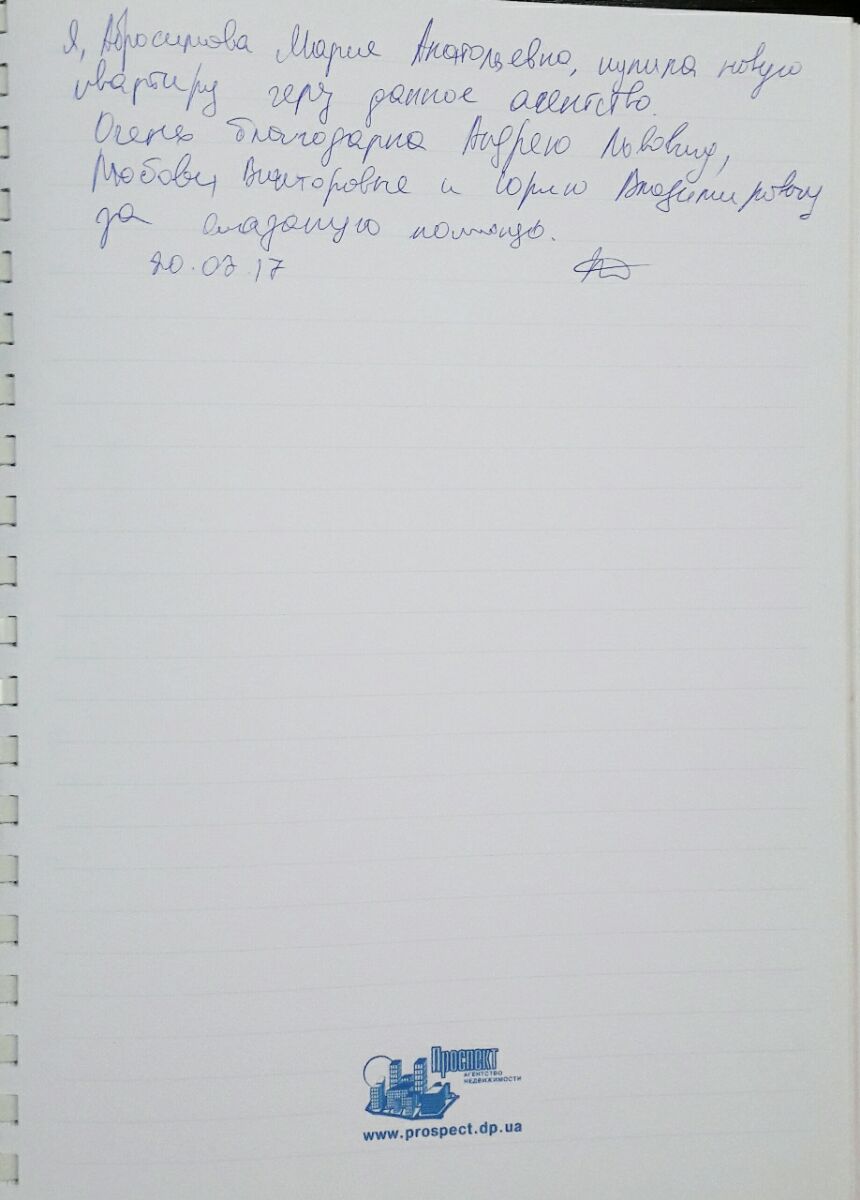 Я, Абросимова Мария Анатольевна, купила новую
квартиру через данное агентство.
Очень благодарна Андрею Львовичу,
Любовь Викторовне и Юрию Владимировичу
за оказаную помощь.
20.07.17
Проспект
АГЕНТСТВО
НЕДВИЖИМОСТИ
www.prospect.dp.ua